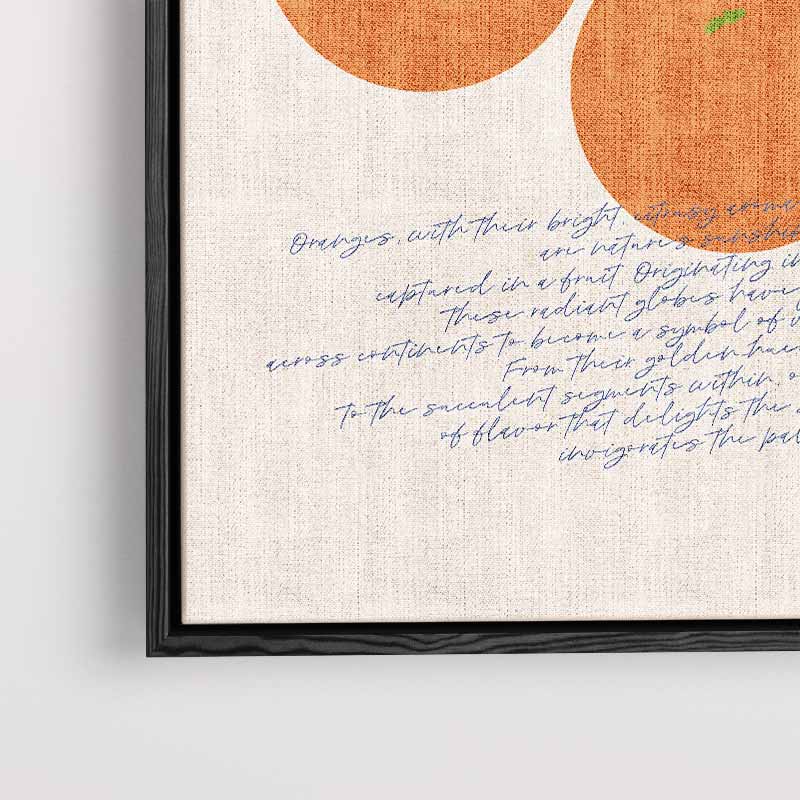 Oranges, with their bright citrusy aroma
are nature's sunshin
captured in a fruit Originating in
these radiant globes have
across continents to become a symbol of v
From their golden hues
to the succulent segments within, o
of flavor that delights the
invigorates the pal